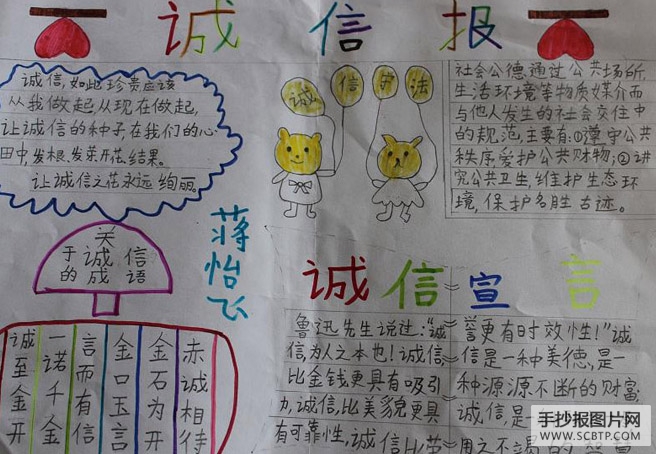 诚信报
诚信，如此珍贵应该
从我做起，从现在做起，
让诚信的种子，在我们的心
田中，发根、发芽、开花、结果。
让诚信之花永远绚丽。
诚 信 守 法
社会公德，通过公共场所，
生活环境等物质媒介而
与他人发生的社会交往中
的规范，主要有：①遵守公共
秩序爱护公共财物；②讲
究公共卫生，维护生态环
境，保护名胜古迹。
关
于诚信
的成语
蒋怡飞
诚至金开
一诺千金
言而有信
金口玉言
金石为开
赤诚相待
诚信宣言
鲁迅先生说过：“诚
信为人之本也！诚信
比金钱更具有吸引
力，诚信，比美貌更具
有可靠性，诚信比荣
誉更有时效性！”诚
信是一种美德，是一
种源源不断的财富
诚信是一
用之不竭的
手抄报图片网
WWW.SCBTP.COM